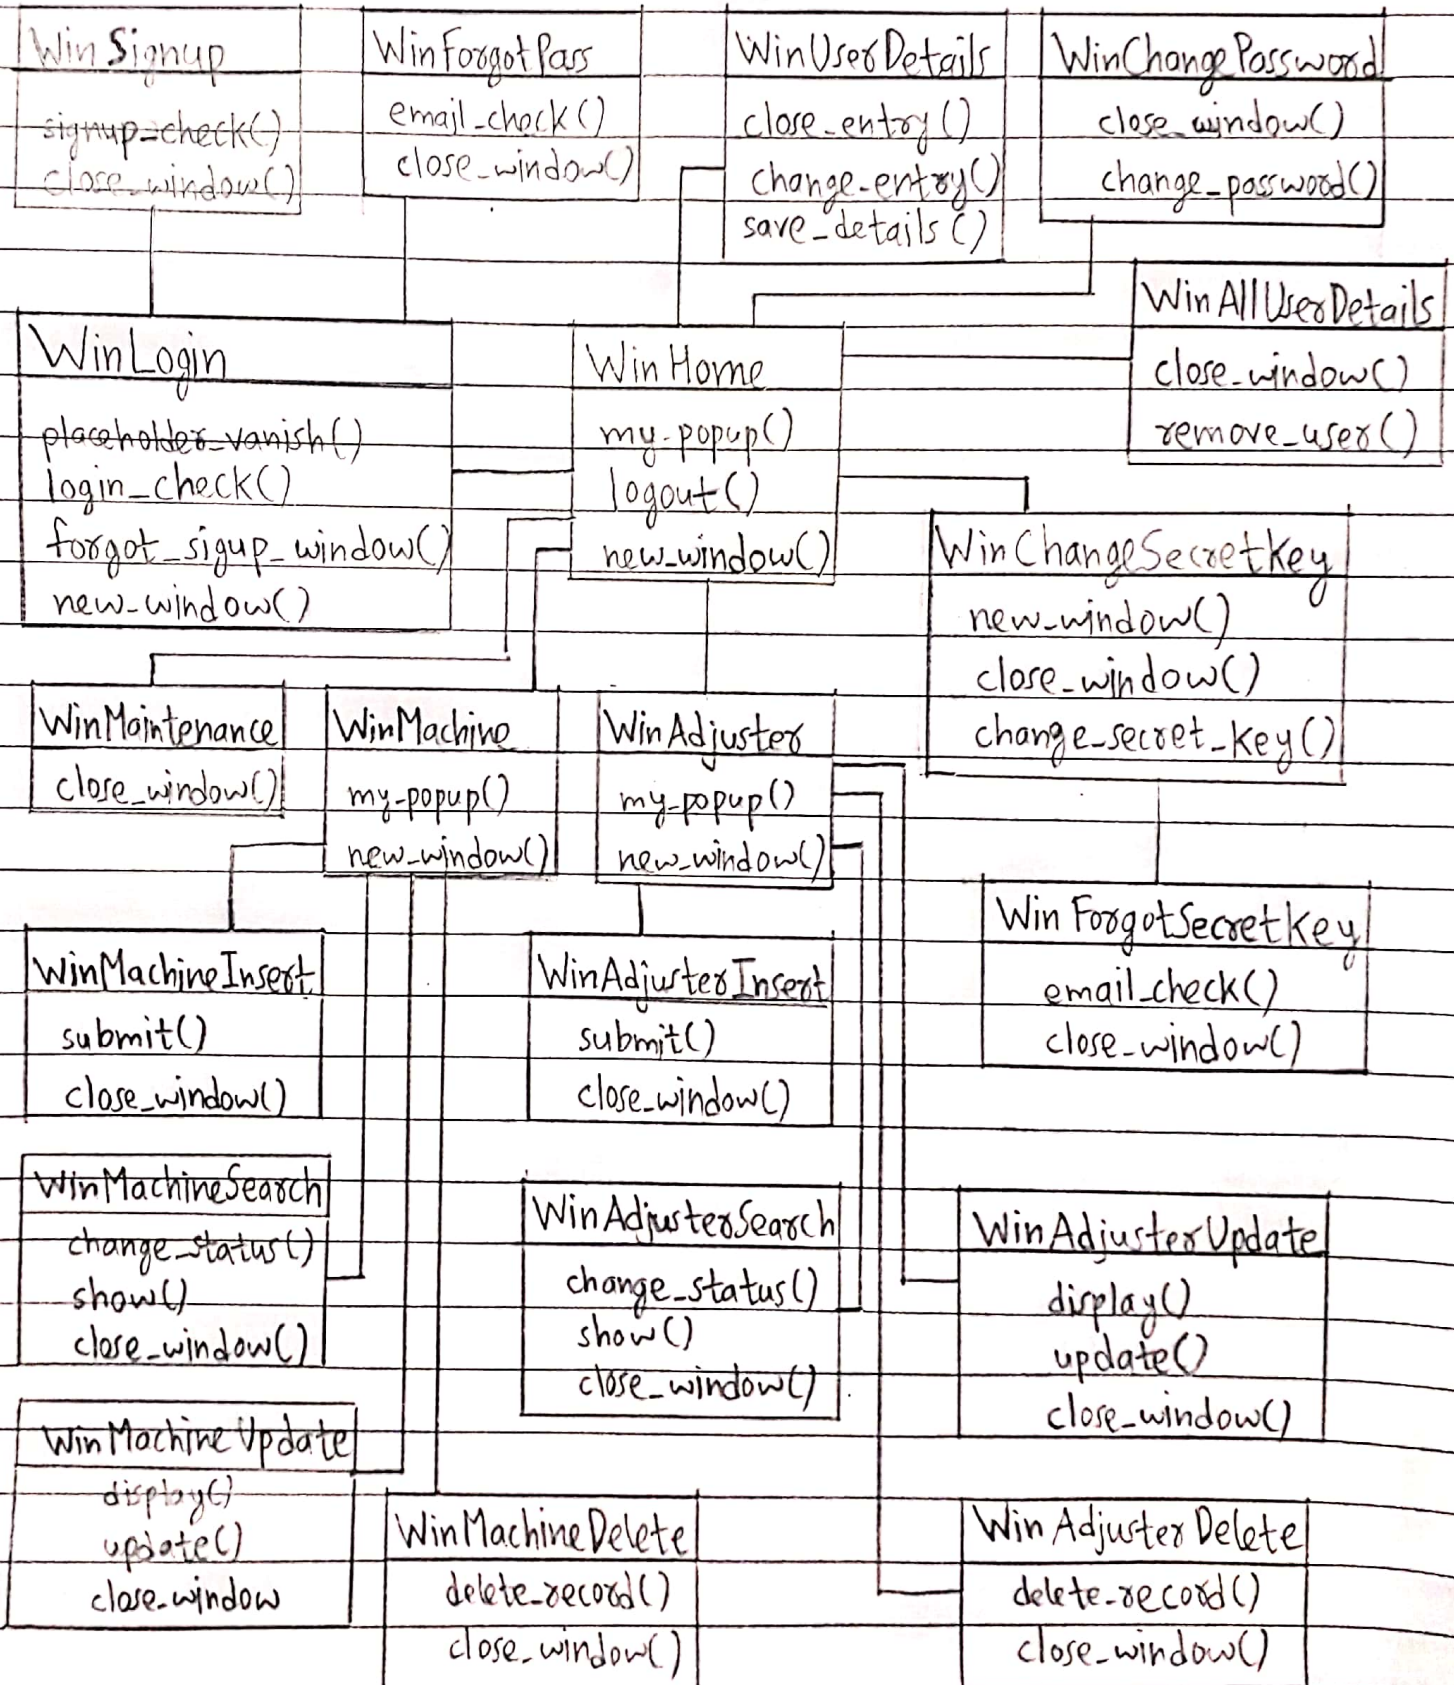 WinSignup
signup_check()
close_window()
WinForgotPass
email_check()
close_window()
WinUserDetails
close_entry()
change_entry()
save_details()
WinChangePassword
close_window()
change_password()
WinAllUserDetails
close_window()
remove_user()
WinLogin
placeholder_vanish()
login_check()
forgot_sigup_window()
new_window()
WinHome
my_popup()
logout()
new_window()
WinChangeSecretKey
new_window()
close_window()
change_secret_key()
WinMaintenance
close_window()
WinMachine
my_popup()
new_window()
WinAdjuster
my_popup()
new_window()
WinForgotSecretKey
email_check()
close_window()
WinMachineInsert
submit()
close_window()
WinAdjusterInsert
submit()
close_window()
WinMachineSearch
change_status()
show()
close_window()
WinAdjusterSearch
change_status()
show()
close_window()
WinAdjusterUpdate
display()
update()
close_window()
WinMachineUpdate
display()
update()
close_window
WinMachineDelete
delete_record()
close_window()
WinAdjusterDelete
delete_record()
close_window()